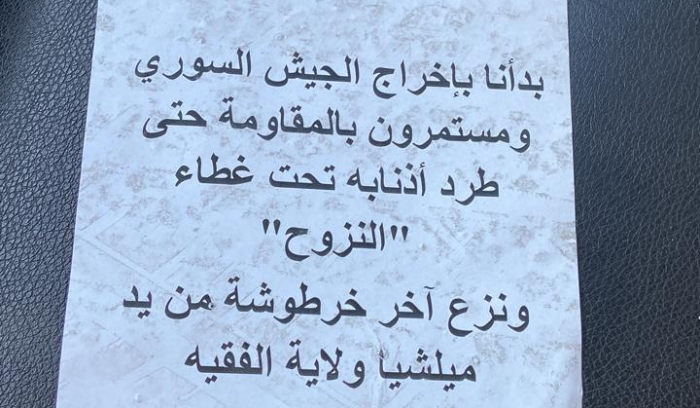 بدأنا بإخراج الجيش السوري
ومستمرون بالمقاومة حتى
طرد أذنابه تحت غطاء
"النزوح"
ونزع آخر خرطوشة من يد
ميلشيا ولاية الفقيه